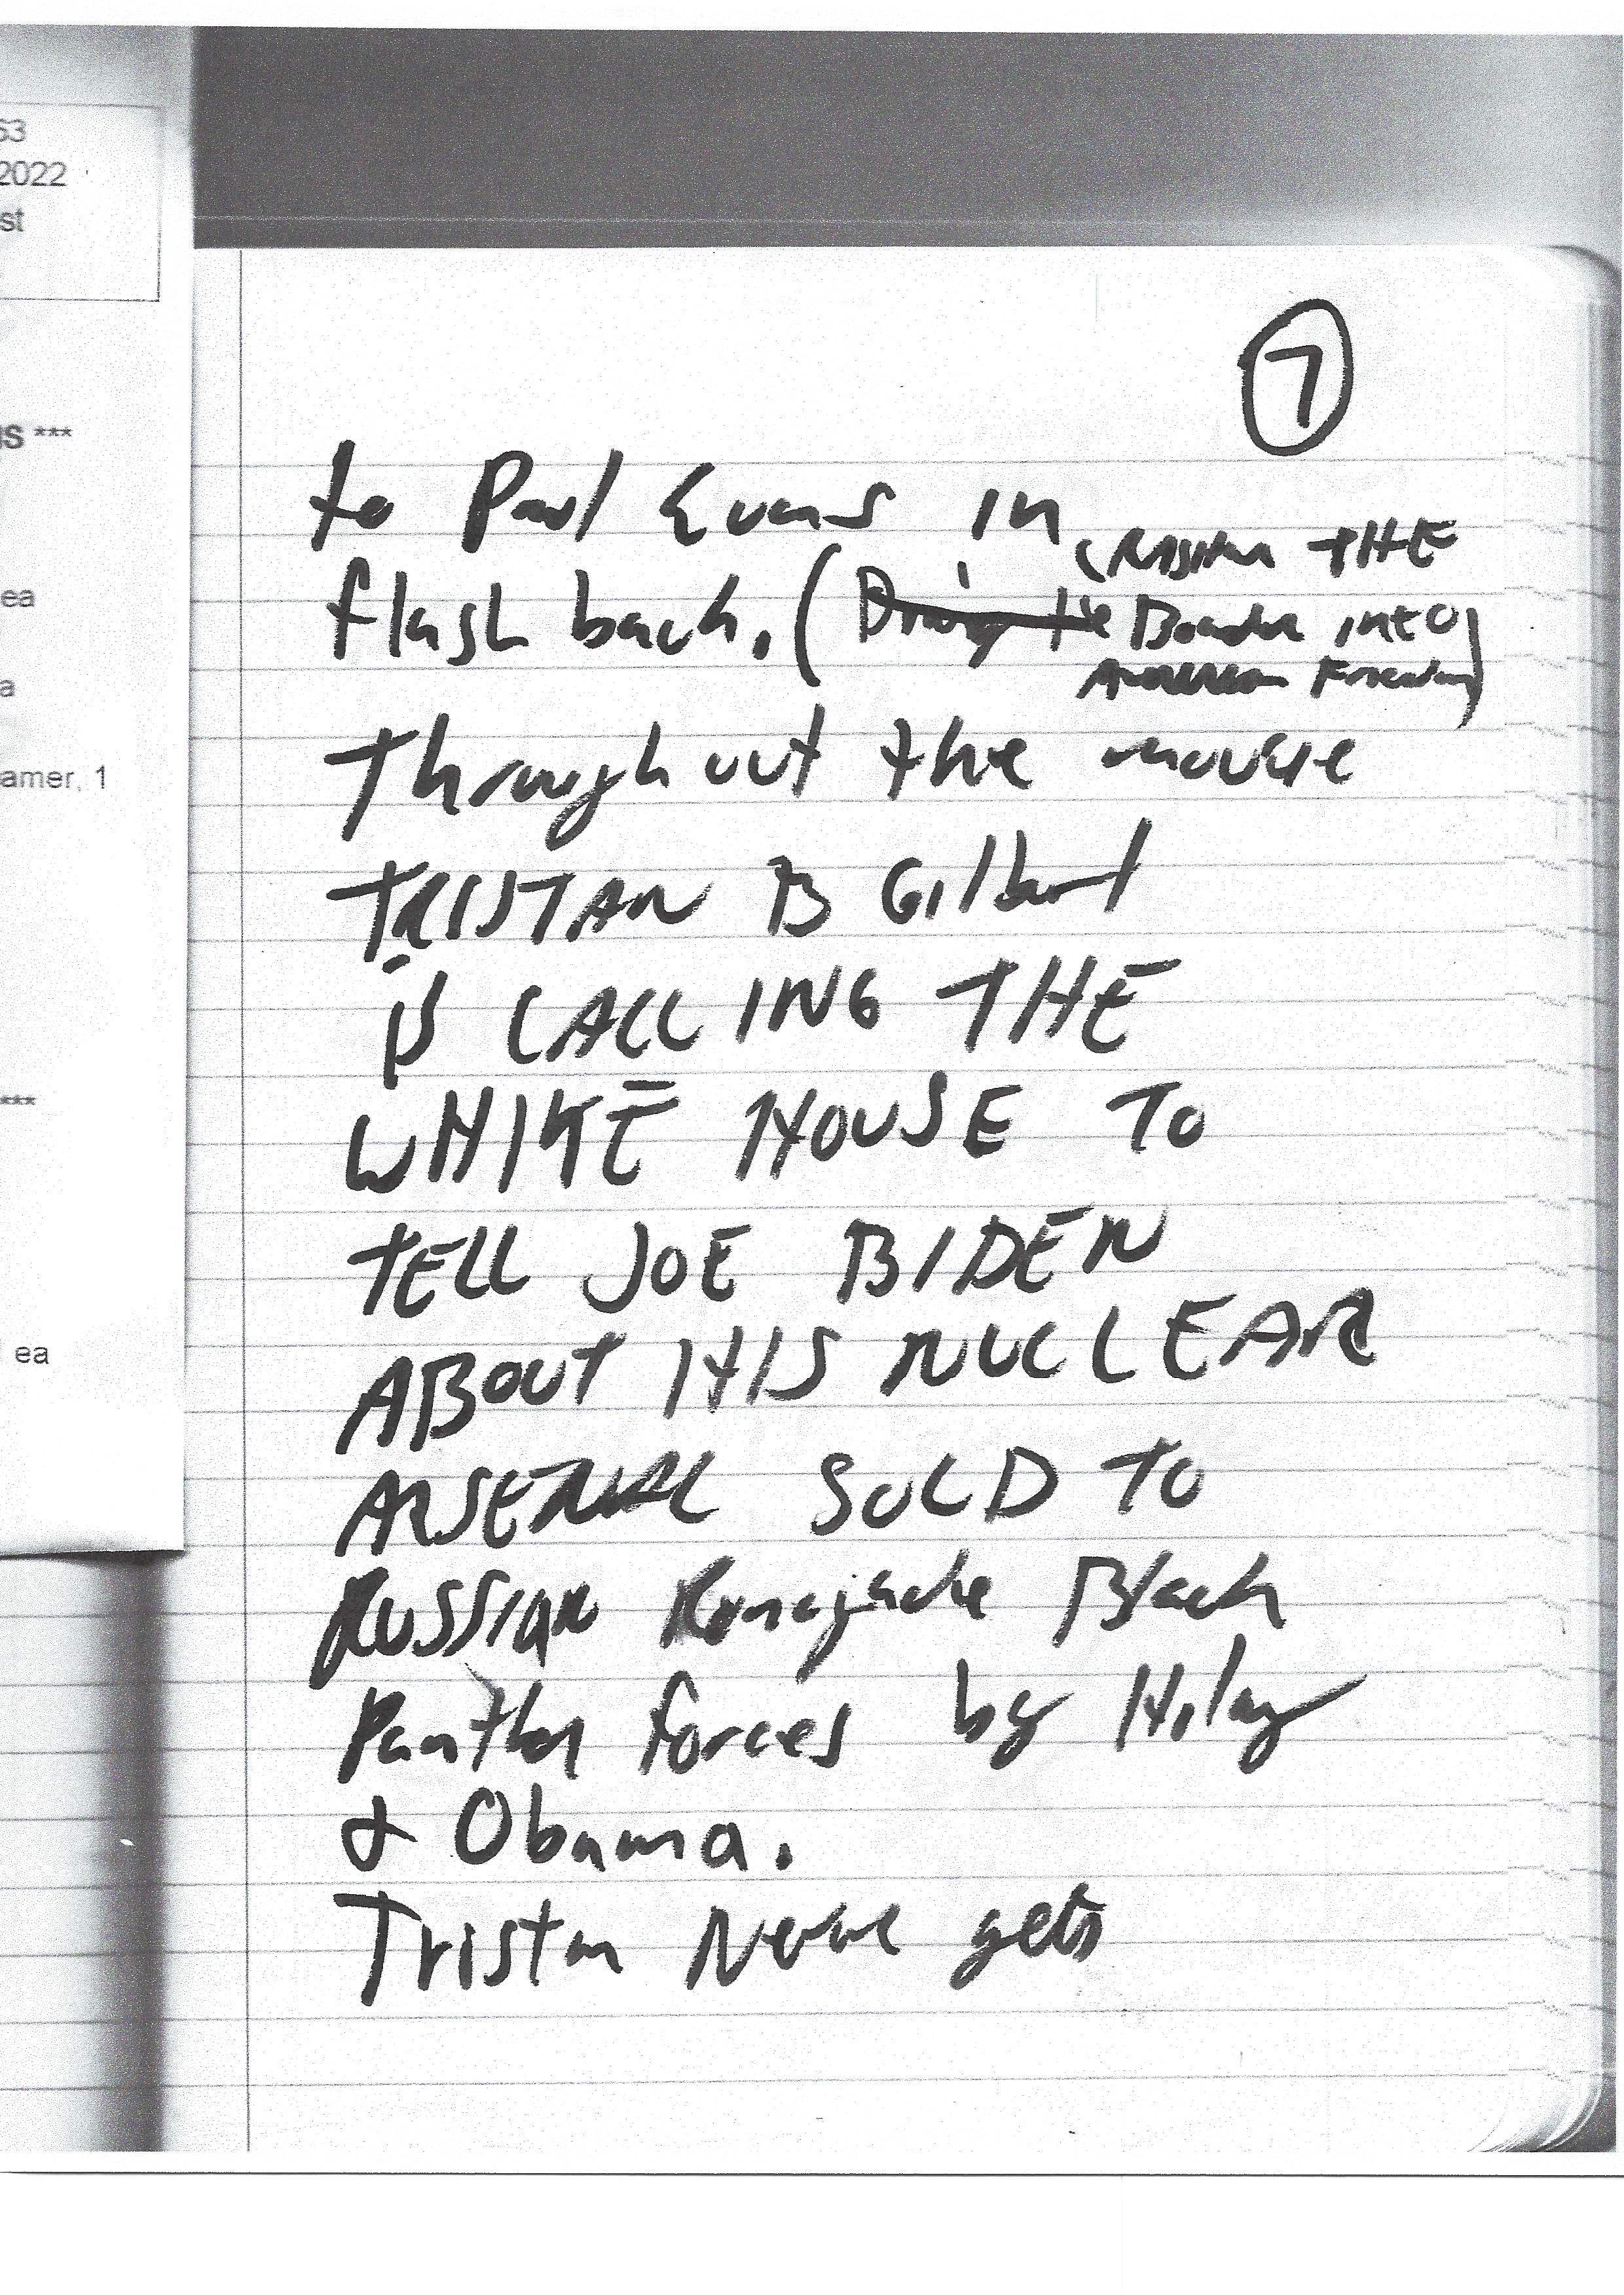 63
2022
st
s ***
ea
a
amer, 1
***
ea
7
to Paul Evans in
flash back. ( the
THE
Boarder into
American Freedom)
Throughout the movie
TRISTAN B Gilbert
is CALLING THE
WHITE HOUSE TO
TELL JOE BIDEN
ABOUT HIS NUCLEAR
ARSENAL SOLD TO
RUSSIAN Black
Panther forces by Hilary
& Obama.
Tristan Never gets